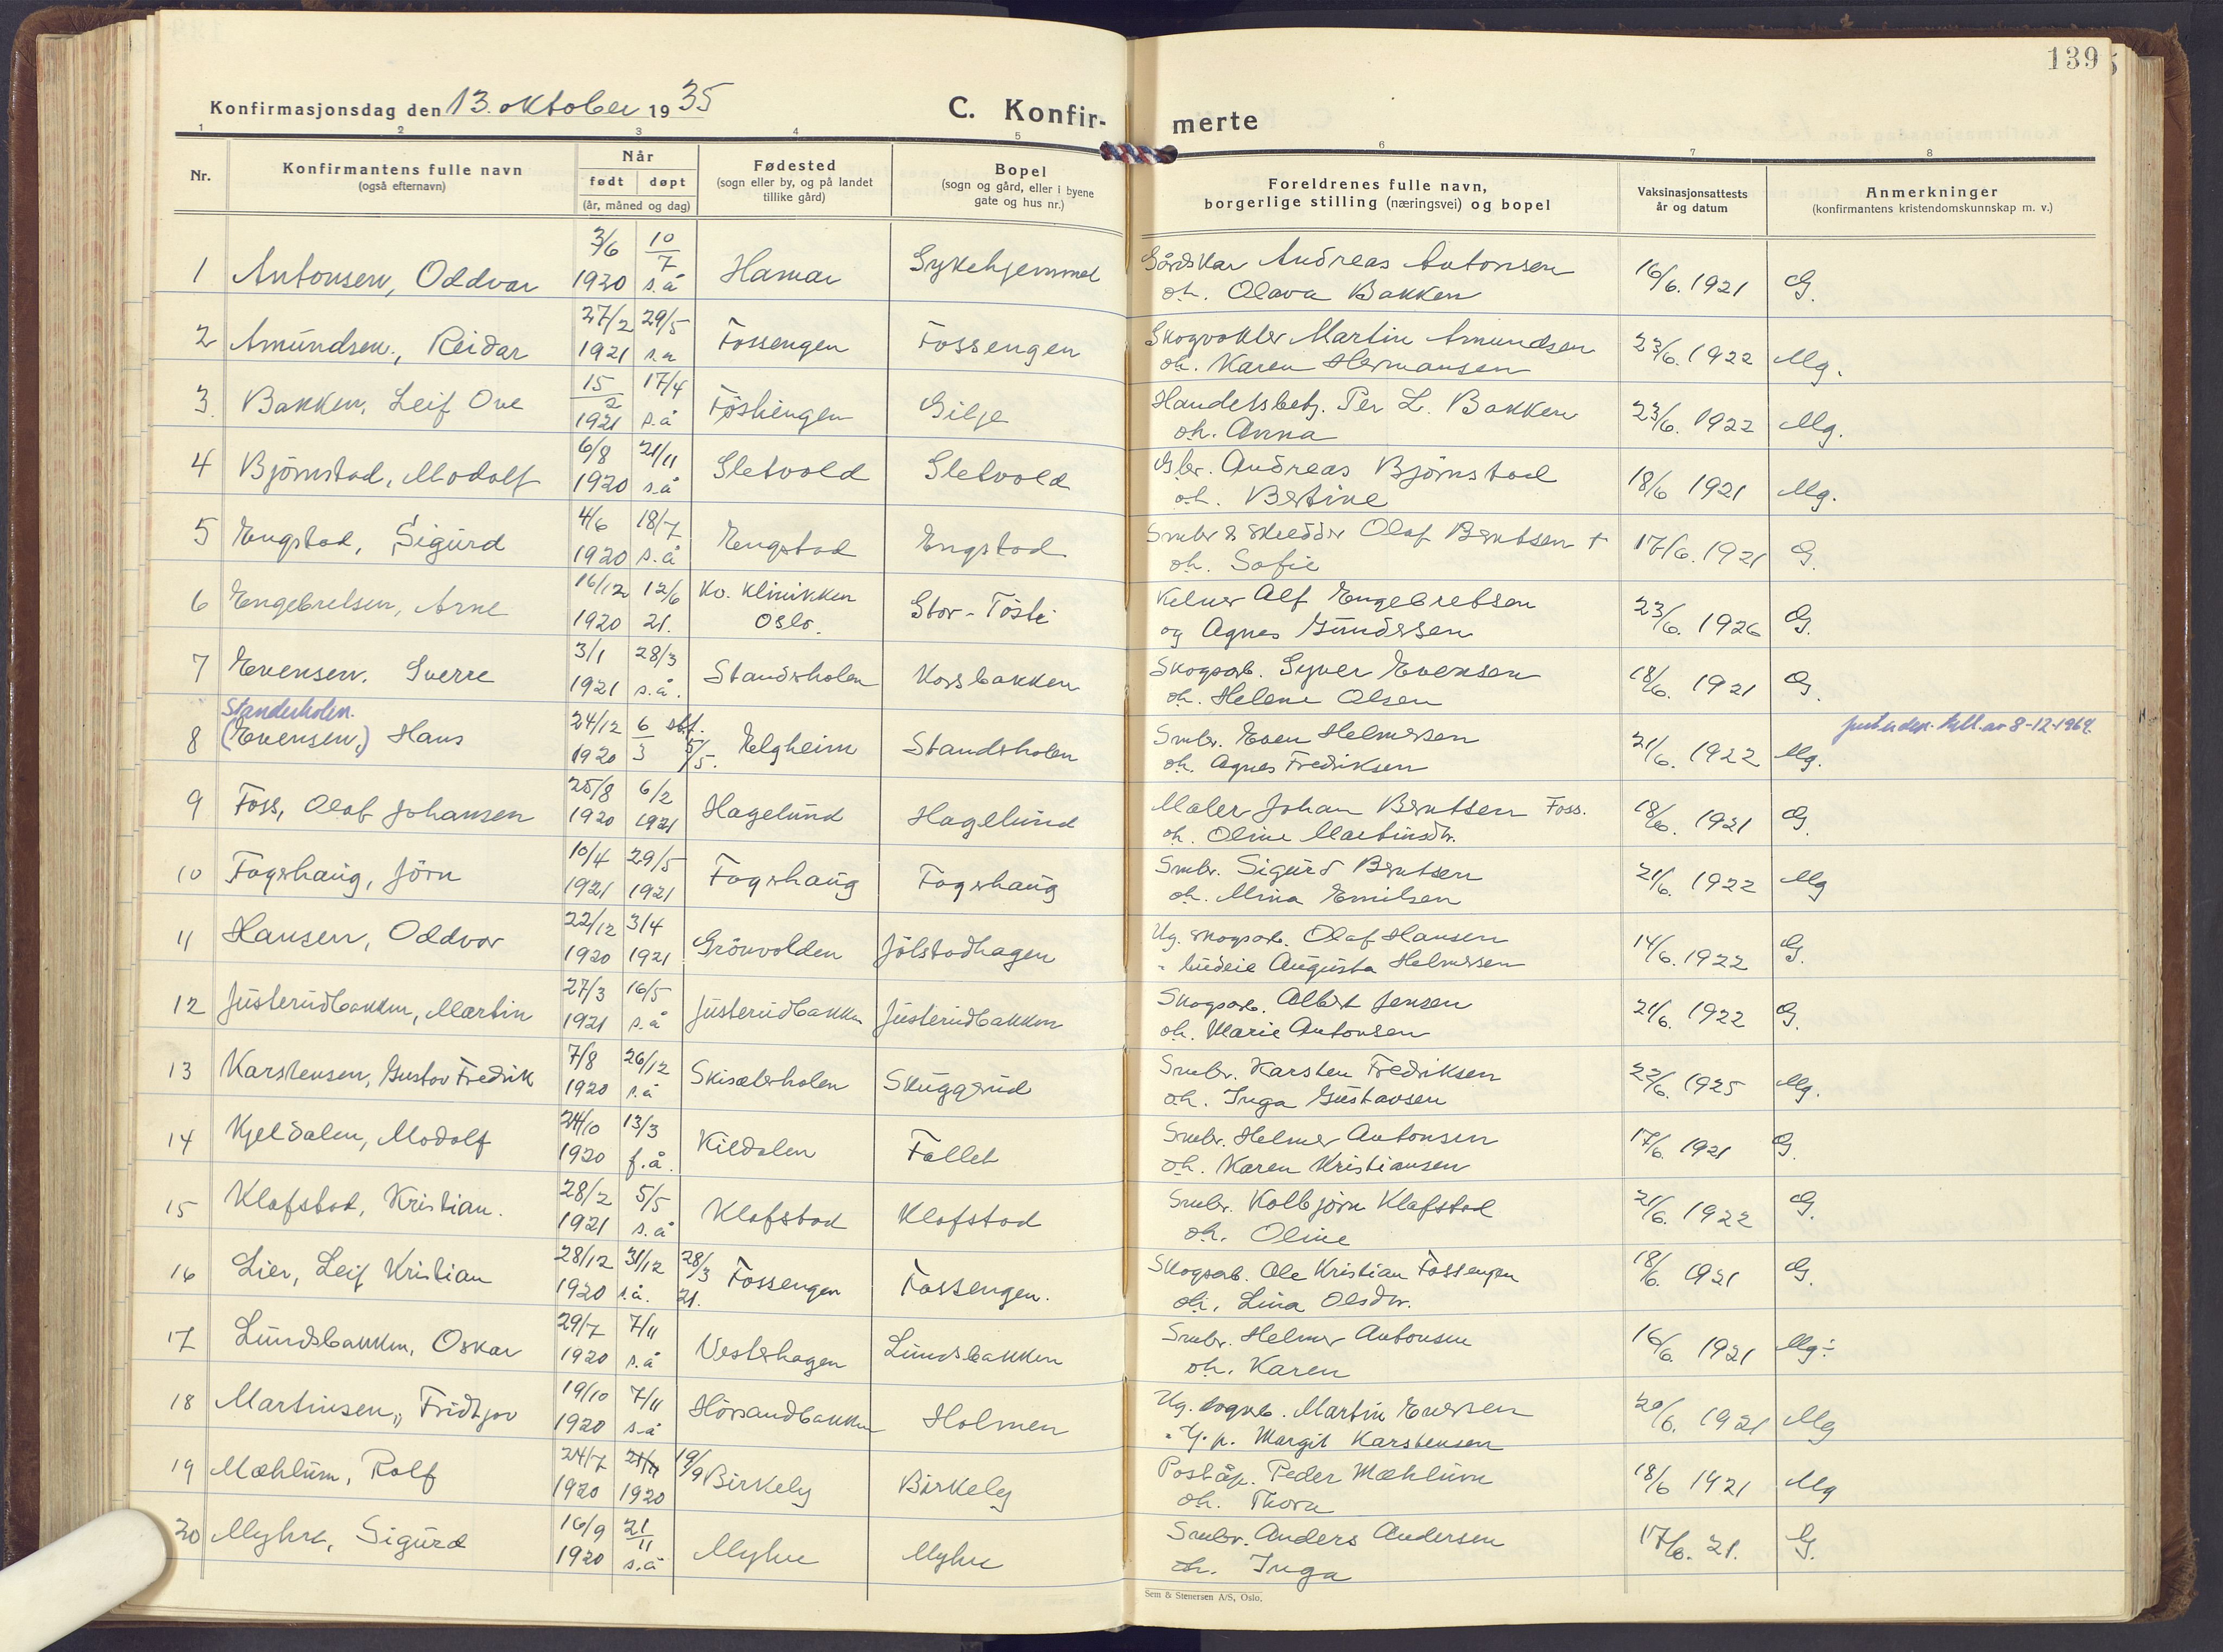 139
Konfirmasjonsdag den 13. oktober 1935
C. Konfir-
merte
1 2 3 4 5 6 7 8
Nr.
Konfirmantens fulle navn
(også efternavn)
Når
født døpt
(år, måned og dag)
Fødested
(sogn eller by, og på landet
tillike gård)
Bopel
(sogn og gård, eller i byene
gate og hus nr.)
Foreldrenes fulle navn,
borgerlige stilling (næringsvei) og bopel
Vaksinasjonsattests
år og datum
Anmerkninger
(konfirmantens kristendomskunnskap m. v.)
3/6 10/7 Gårdskar Andreas Antonsen
1 Antonsen, Oddvar 1920 s.å Hamar Sykehjemmet oh. Olava Bakken 16/6. 1921 G.
27/2 29/5 Skogvokter Martin Amundsen
2 Amundsen, Reidar 1921 s.å Fossengen Fossengen oh. Karen Hermansen 23/6. 1922 Mg.
15/2 17/4 Handelsbetj. Per L. Bakken
3. Bakken, Leif Ove 1921 s.å Töstiengen Gilje oh. Anna 23/6. 1922 Mg.
6/8 21/11 Gbr. Andreas Björnstad
4 Björnstad, Modolf 1920 s.å Sletvold Sletvold oh. Bertine 18/6 1921 Mg.
4/6 18/7 Smbr & skredder Olaf Berntsen +
5 Engstad, Sigurd 1920 s.å Engstad Engstad oh. Sofie 17/6. 1921 G.
16/12 12/6 Kv. klinikken Kelner Alf Engebretsen
6 Engebretsen, Arne 1920 21. Oslo. Stor-Tösti og Agnes Gundersen 23/6. 1926 G.
3/1 28/3 Skogsarb. Syver Evensen
7 Evensen. Sverre 1921 s.å. Standerholen Korsbakken oh. Helene Olsen 18/6. 1921 G.
Standerholen.
24/12 6/3 stf. 5/5. Smbr. Even Helmersen
8 (Evensen,) Hans 1920 Elgheim Standerholen oh. Agnes Fredriksen 21/6. 1922 Mg. 8-12-1964.
25/8 6/2 Maler Johan Berntsen Foss.
9 Foss, Olaf Johansen 1920 1921 Hagelund Hagelund oh. Oline Martinsdtr. 18/6. 1921 G.
10/4 29/5 Smbr. Sigurd Berntsen
10 Fagerhaug, Jörn 1921 1921 Fagerhaug Fagerhaug oh. Mina Emilsen 21/6. 1922 Mg
22/12 3/4 Ug. skogsarb. Olaf Hansen
11 Hansen, Oddvar 1920 1921 Grönvolden Jölstadhagen " budeie Augusta Helmersen 14/6. 1922 G.
27/3 16/5 Skogsarb. Albert Jensen
12 Justerudbakken, Martin 1921 s.å Justerudbakken Justerudbakken oh. Marie Antonsen 21/6. 1922 G.
7/8 26/12 Smbr. Karsten Fredriksen
13 Karstensen, Gustav Fredrik 1920 s.å Skisæterholen Skuggerud oh. Inga Gustavsen 22/6. 1925 Mg.
24/10 13/3 Smbr. Helmer Antonsen
14 Kjeldalen, Modolf 1920 f.å. Kildalen Fallet oh. Karen Kristiansen 17/6. 1921 G.
28/2 5/5 Smbr. Kolbjörn Klafstad
15 Klafstad, Kristian. 1921 s.å Klafstad Klafstad oh. Oline 21/6. 1922 G.
28/12 31/12 28/3 21. Skogsarb. Ole Kristian Fossengen
16 Lier, Leif Kristian 1920 s.å. Fossengen Fossengen. oh. Lina Olsdtr. 18/6. 1921 G.
29/7 7/11 Smbr. Helmer Antonsen
17 Lundsbakken, Oskar 1920 s.å Vesterhagen Lundsbakken oh. Karen 16/6. 1921 Mg÷
19/10 7/11 Ug. Martin Evensen
18 Martinsen, Fridtjov 1920 s.å Hörsandbakken Holmen " Margit Karstensen 20/6. 1921 Mg
24/7 21/11 19/9 Poståp. Peder Mæhlum
19 Mæhlum, Rolf 1920 1920 Birkely Birkely oh. Thora 18/6 1921 Mg
16/9 21/11 Smbr. Anders Andersen
20 Myhre, Sigurd 1920 s.å Myhre Myhre oh. Inga 17/6. 21. G.
Sem & Stenersen A/S, Oslo.